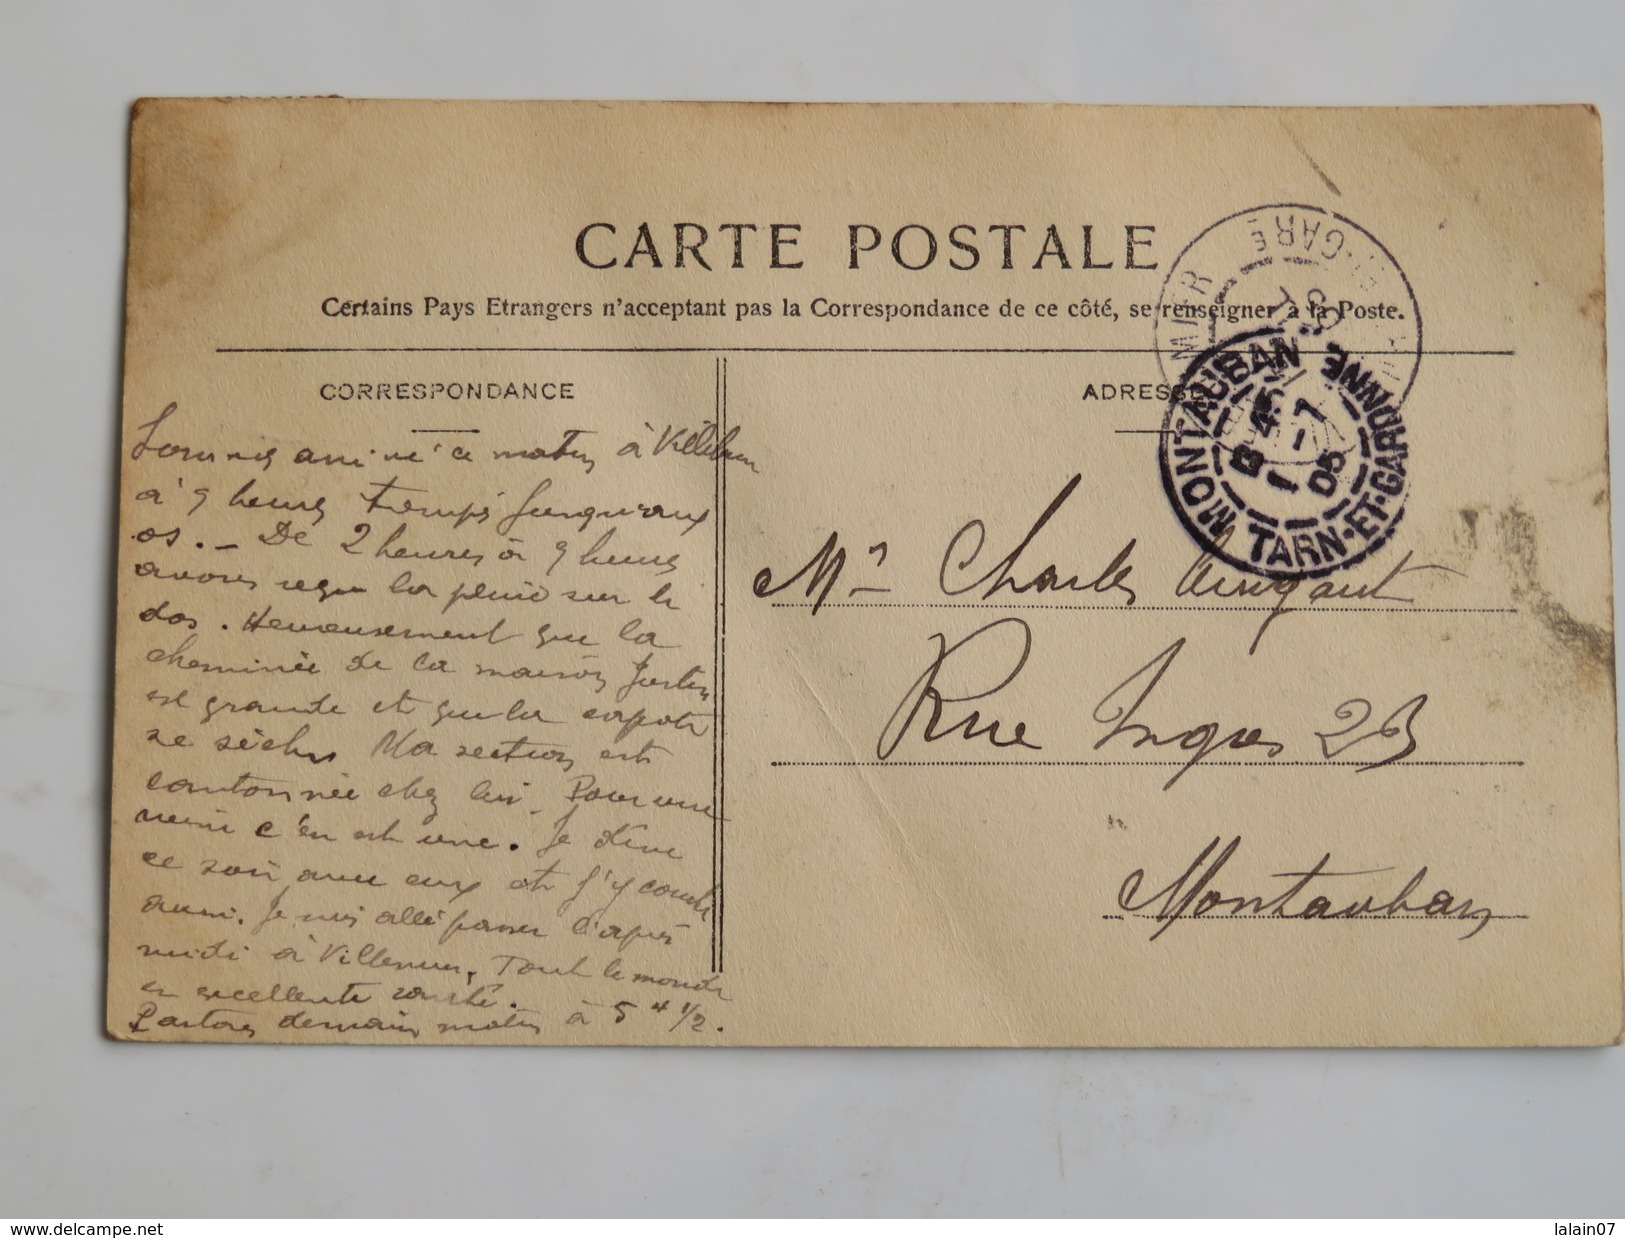 CARTE POSTALE
Certains Pays Etrangers n'acceptant pas la Correspondance de ce côté, se renseigner à la Poste.
CORRESPONDANCE
Sommes arrivé ce matin à
à 9 heures trempés jusqu'aux
os. - De 2 heures à 9 heures
avons reçu la pluie sur le
dos. Heureusement que la
cheminée de la maison
est grande et que la capote
se sèche Ma section est
cantonnée chez lui - Pour une
veine c'en est une. Je dîne
ce soir avec eux et j'y couche
aussi. Je suis allé passer l'après
midi à Villemur. Tout le monde
en excellente santé.
Partons demain matin à 5 h 1/2.
ADRESSE
Mr Charles
Rue Ingres 23
Montauban
GARE
MONTAUBAN
TARN-ET-GARONNE
1 - 7
05
delcampe.net
lalain07